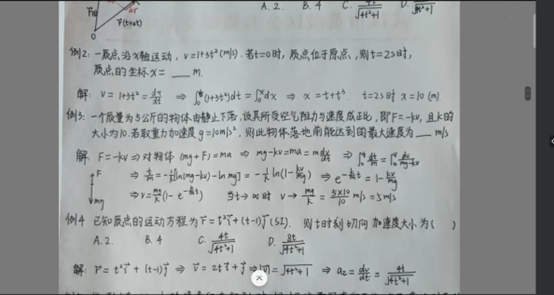 r(t+Δt)
A. 2. B. 4 C. D.
√4t²+1
例2: 一质点沿X轴运动, v=1+3t²(m/s). 若t=0时, 质点位于原点, 则t=2s时,
质点的坐标x= ___ m.
解: v=1+3t²=dx/dt ⇒ ∫(1+3t²)dt=∫dx ⇒ x=t+t³. t=2s时 x=10(m)
例3: 一个质量为5公斤的物体由静止下落, 设其所受空气阻力与速度成正比, 即F=-kv, 且k的
大小为10. 若取重力加速度g=10m/s², 则此物体落地前能达到的最大速度为 ___ m/s
解 F=-kv ⇒ 对物体 (mg+F)=ma ⇒ mg-kv=ma=m dv/dt ⇒ ∫dt/m=∫dv/(mg-kv)
F ⇒ t/m=-1/k[ln(mg-kv)-ln mg]=-1/k ln(1-kv/mg) ⇒ e^(-k/m t)=1-kv/mg
mg ⇒ v=mg/k(1-e^(-k/m t)) 当t→∞时 v→mg/k=5×10/10 m/s=5m/s
例4 已知质点的运动方程为r=t²i+(t-1)j (SI). 则t时刻切向加速度大小为( )
A. 2. B. 4 C. 4t/√4t²+1 D. 8t/√4t²+1
解: r=t²i+(t-1)j ⇒ v=2ti+j ⇒ |v|=√4t²+1 ⇒ a=dv/dt=4t/√4t²+1